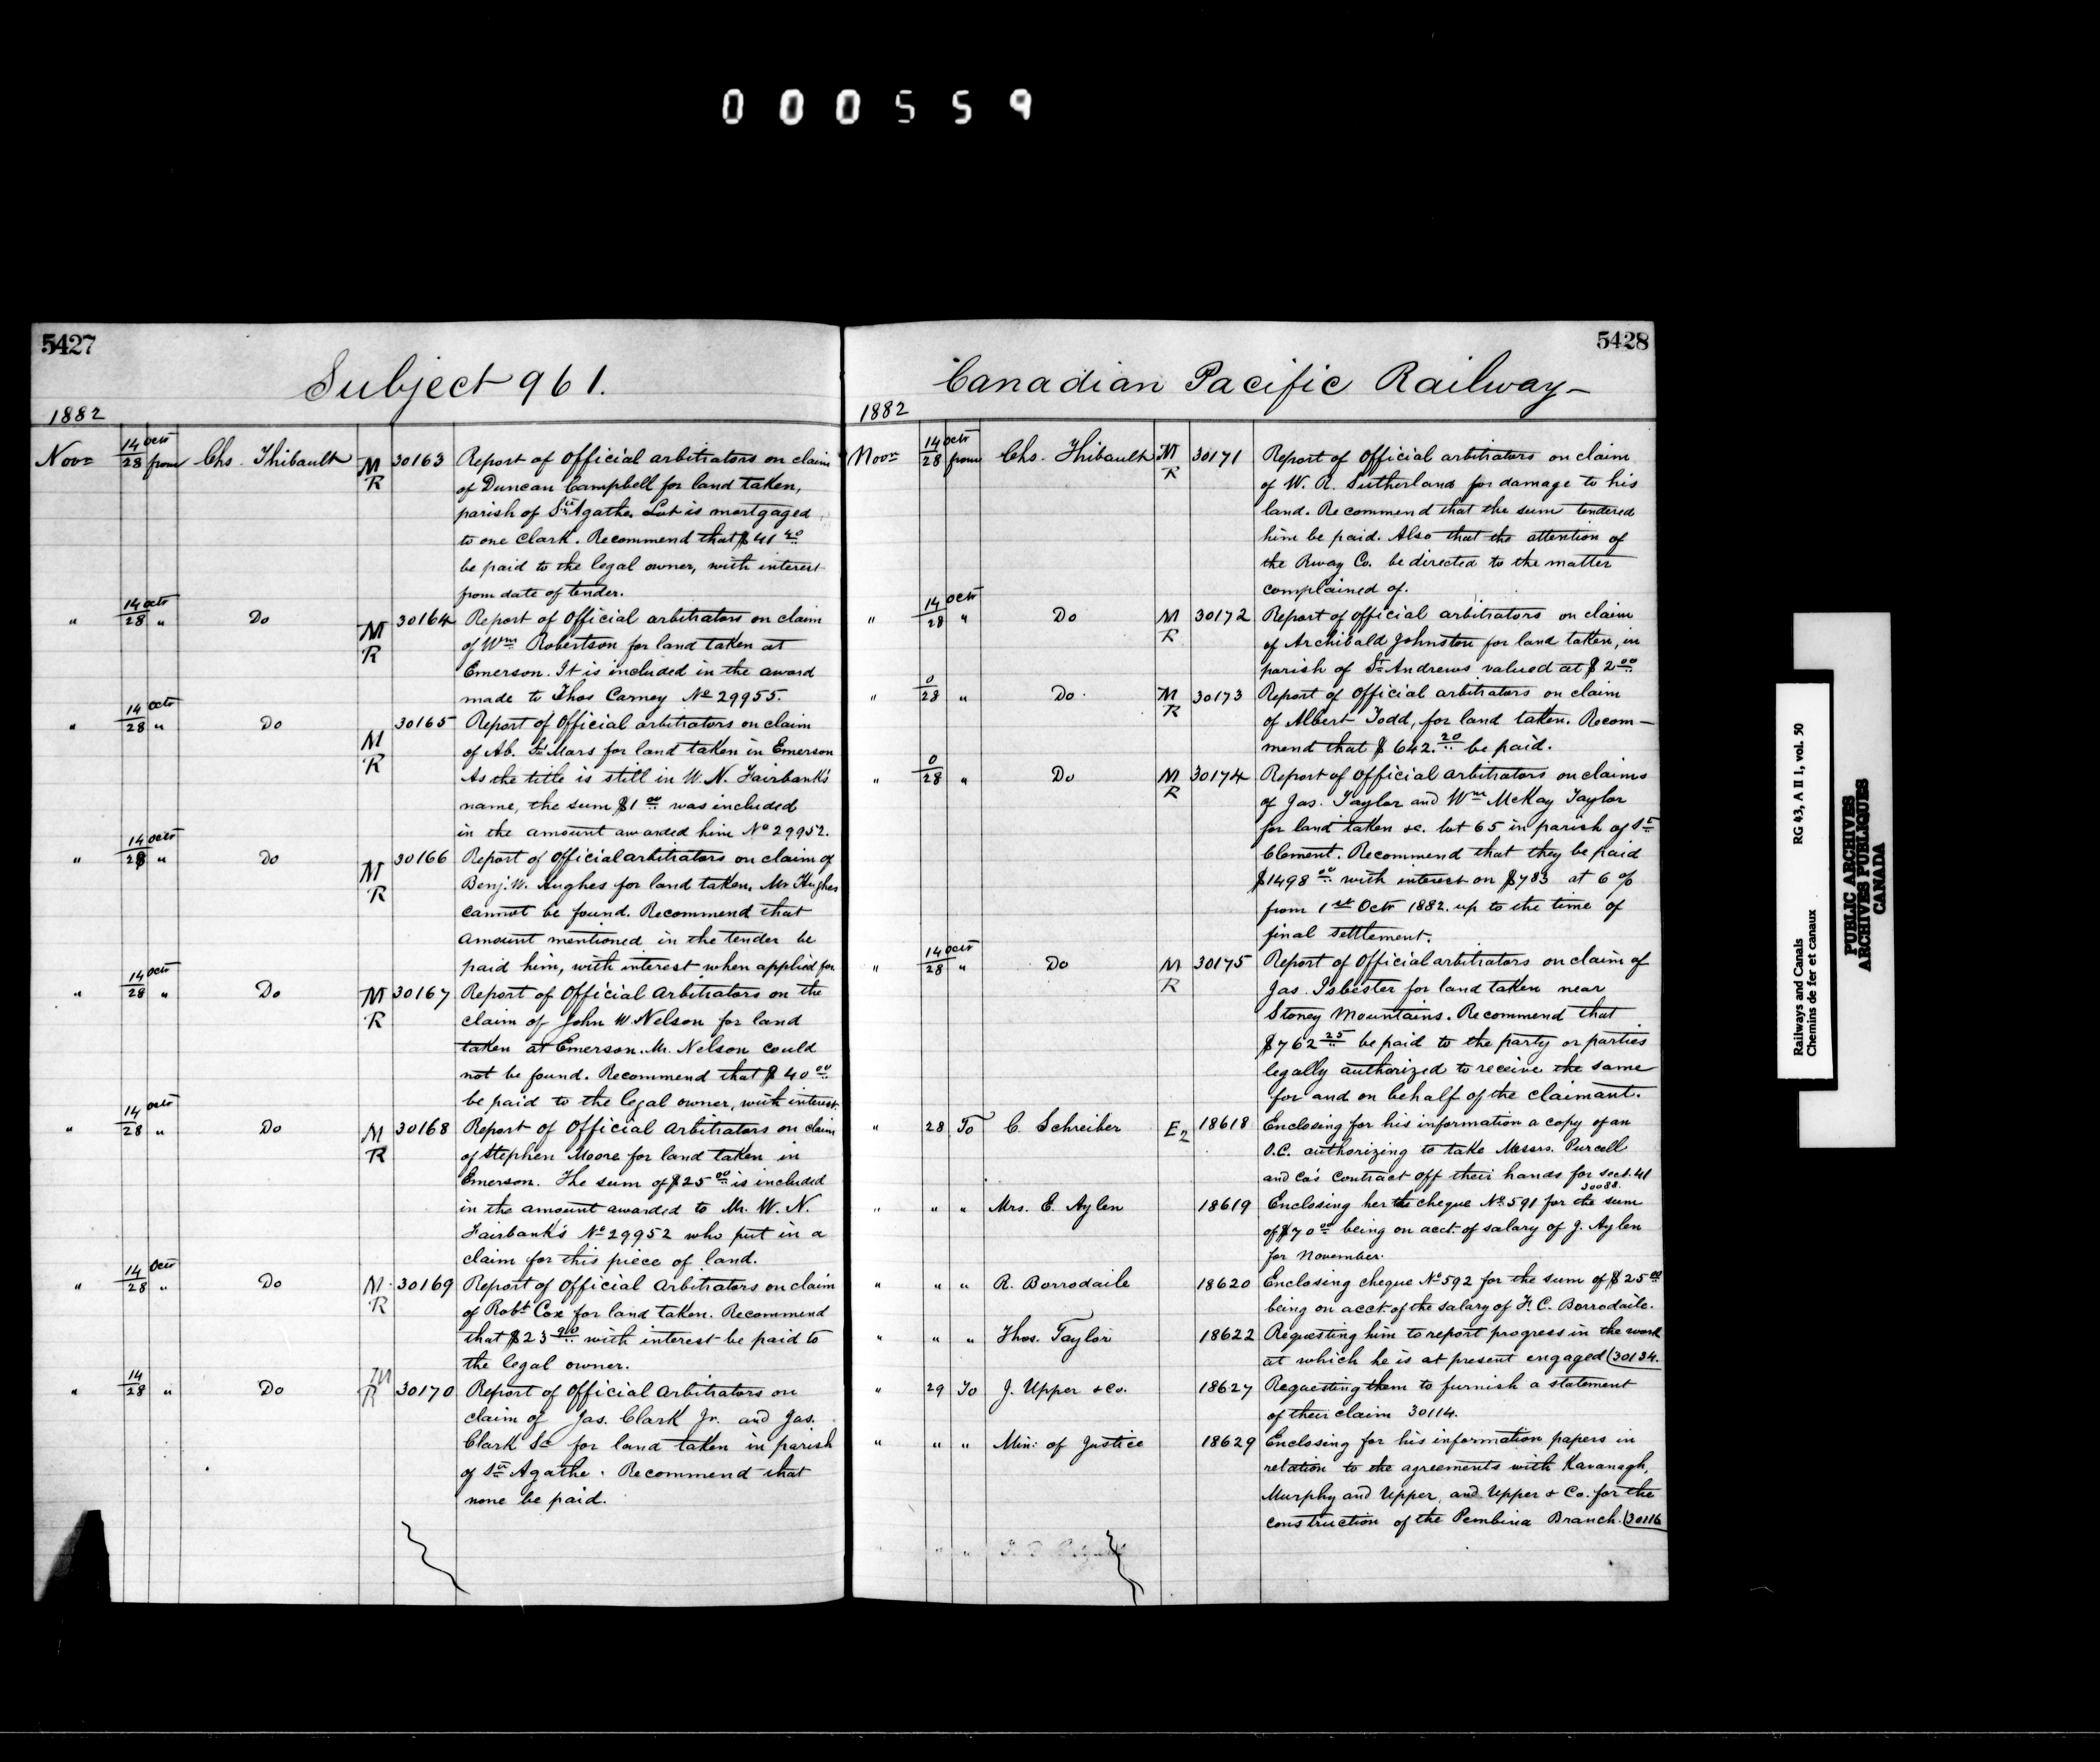 000559
5427
Subject 961.
1882
Novr 14 Octr / 28 from Chs. Thibault M R 30163 Report of Official arbitrators on claim
of Duncan Campbell for land taken,
parish of Ste Agathe. Lot is mortgaged
to one Clark. Recommend that $41 40
be paid to the legal owner, with interest
from date of tender.
" 14 Octr / 28 " Do M R 30164 Report of Official arbitrators on claim
of Wm Robertson for land taken at
Emerson. It is included in the award
made to Thos Carney No 29955.
" 14 Octr / 28 " Do M R 30165 Report of Official arbitrators on claim
of Ab. Mars for land taken in Emerson
As the title is still in W. N. Fairbank's
name, the sum $1 00 was included
in the amount awarded him No 29952.
" 14 Octr / 28 " Do M R 30166 Report of Official arbitrators on claim of
Benj. W. Hughes for land taken. Mr Hughes
cannot be found. Recommend that
amount mentioned in the tender be
paid him, with interest when applied for
" 14 Octr / 28 " Do M R 30167 Report of Official Arbitrators on the
claim of John W Nelson for land
taken at Emerson. Mr. Nelson could
not be found. Recommend that $40 00
be paid to the legal owner, with interest.
" 14 Octr / 28 " Do M R 30168 Report of Official Arbitrators on claim
of Stephen Moore for land taken in
Emerson. The sum of $25 00 is included
in the amount awarded to Mr. W. N.
Fairbank's No 29952 who put in a
claim for this piece of land.
" 14 Octr / 28 " Do M R 30169 Report of Official Arbitrators on claim
of Robt Cox for land taken. Recommend
that $23 90 with interest be paid to
the legal owner.
" 14 / 28 " Do M R 30170 Report of Official Arbitrators on
claim of Jas. Clark Jr. and Jas.
Clark Sr for land taken in parish
of Ste Agathe. Recommend that
none be paid.
5428
Canadian Pacific Railway
1882
Novr 14 Octr / 28 from Chs. Thibault M R 30171 Report of Official arbitrators on claim
of W. R. Sutherland for damage to his
land. Recommend that the sum tendered
him be paid. Also that the attention of
the Rway Co. be directed to the matter
complained of.
" 14 Octr / 28 " Do M R 30172 Report of Official arbitrators on claim
of Archibald Johnston for land taken, in
parish of St Andrews valued at $2 00
" 0 / 28 " Do. M R 30173 Report of Official arbitrators on claim
of Albert Todd, for land taken. Recom-
mend that $642. 20 be paid.
" 0 / 28 " Do M R 30174 Report of Official arbitrators on claims
of Jas. Taylor and Wm McKay Taylor
for land taken &c. lot 65 in parish of St
Clement. Recommend that they be paid
$1498 00 with interest on $783 at 6 %
from 1st Octr 1882. up to the time of
final settlement.
" 14 Octr / 28 " Do M R 30175 Report of Official arbitrators on claim of
Jas. Isbester for land taken near
Stoney Mountains. Recommend that
$762 25 be paid to the party or parties
legally authorized to receive the same
for and on behalf of the claimant.
" 28 To C. Schreiber E2 18618 Enclosing for his information a copy of an
O.C. authorizing to take Messrs. Purcell
and Co's contract off their hands for sect. 41
30088.
" " " Mrs. E. Aylen 18619 Enclosing her the cheque No 591 for the sum
of $70 00 being on acct. of salary of J. Aylen
for November.
" " " R. Borrodaile 18620 Enclosing cheque No 592 for the sum of $25 00
being on acct. of the salary of F. C. Borrodaile.
" " " Thos. Taylor 18622 Requesting him to report progress in the work
at which he is at present engaged (30134.
" 29 To J. Upper & Co. 18627 Requesting them to furnish a statement
of their claim 30114.
" " " Min: of Justice 18629 Enclosing for his information papers in
relation to the agreements with Kavanagh,
Murphy and Upper, and Upper & Co. for the
construction of the Pembina Branch. (30116
Railways and Canals RG 43, A II 1, vol. 50
Chemins de fer et canaux
PUBLIC ARCHIVES
ARCHIVES PUBLIQUES
CANADA